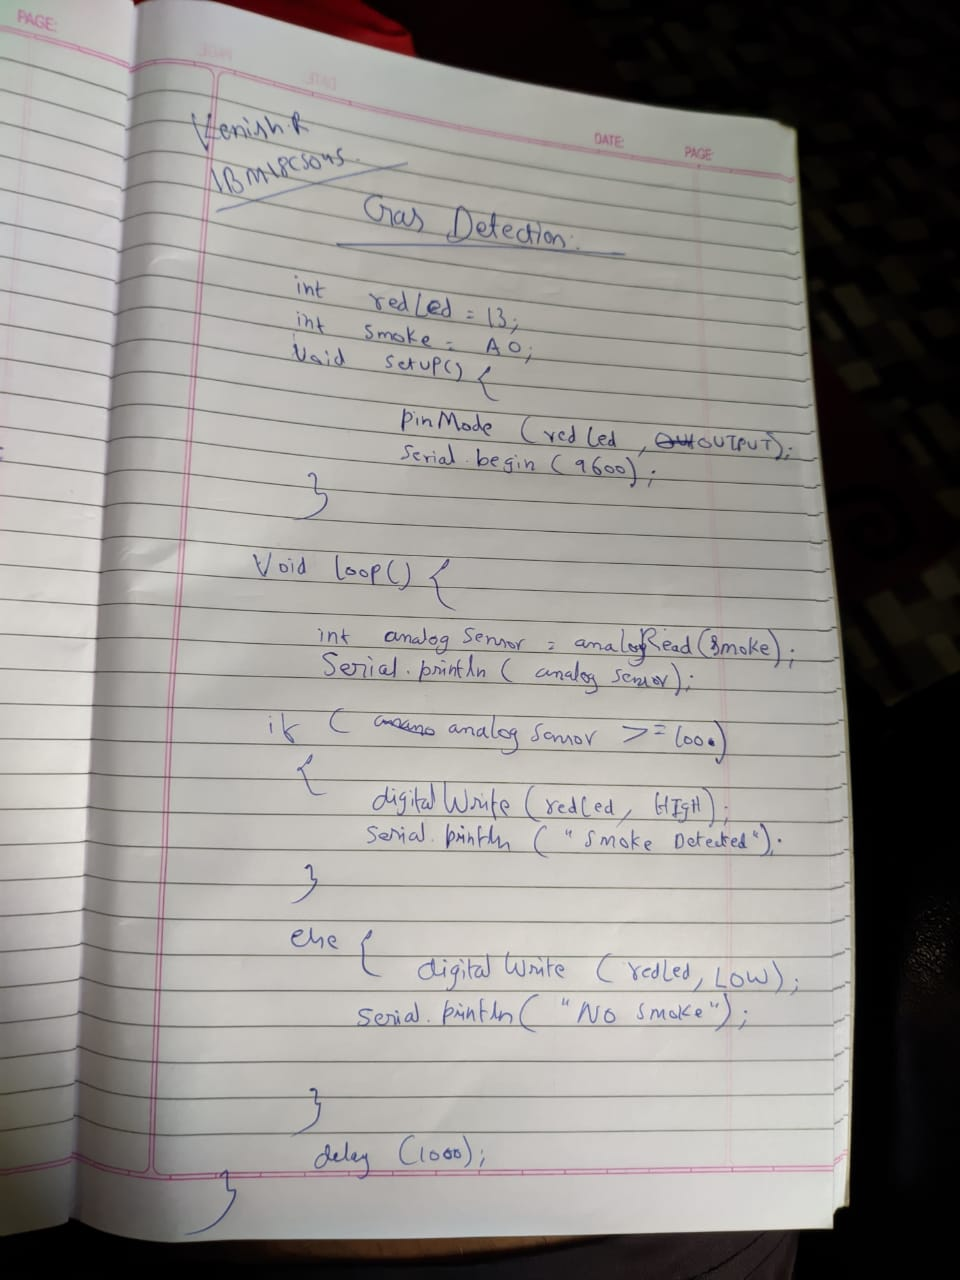 PAGE:
DATE:
PAGE
Venish.R
1BM18CS045.
Gas Detection:
int redLed = 13;
int smoke = A0;
Void setup() {
pinMode (redLed, OUTPUT);
Serial.begin (9600);
}
Void loop() {
int analogSensor = analogRead(smoke);
Serial.println ( analogSensor);
if ( analogSensor >= 1000)
{
digitalWrite (redLed, HIgH);
Serial.println ("Smoke Detected");
}
else {
digitalWrite (redLed, LOW);
Serial.println( "No Smoke");
}
delay (1000);
}